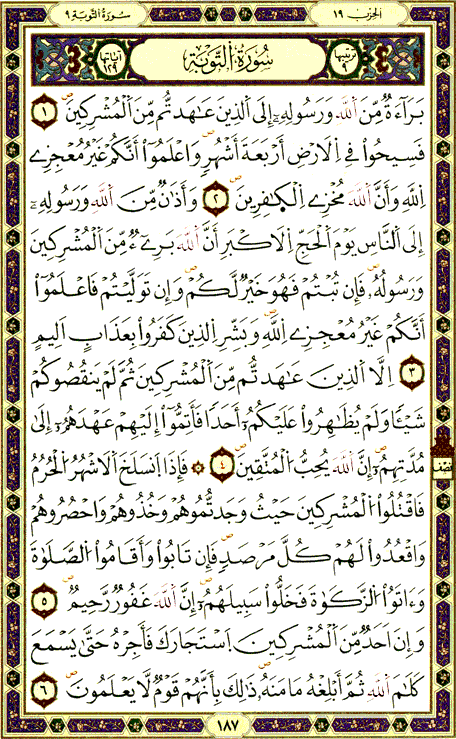 الحزب ١٩
سورة التوبة ٩
ترتيبها ٩
سُورَةُ التَّوْبَةِ
آياتها ١٢٩
بَرَآءَةٌ مِّنَ اَ۬للَّهِ وَرَسُولِهِۦٓ إِلَى اَ۬لذِينَ عَٰهَدتُّم مِّنَ اَ۬لْمُشْرِكِينَ ١
فَسِيحُوا۟ فِے اِ۬لَارْضِ أَرْبَعَةَ أَشْهُرٖ وَاعْلَمُوٓا۟ أَنَّكُمْ غَيْرُ مُعْجِزِے
اِ۬للَّهِ وَأَنَّ اَ۬للَّهَ مُخْزِے اِ۬لْكٰ۪فِرِينَ ٢ وَأَذَٰنٌ مِّنَ اَ۬للَّهِ وَرَسُولِهِۦٓ
إِلَى اَ۬لنَّاسِ يَوْمَ اَ۬لْحَجِّ اِ۬لَاكْبَرِ أَنَّ اَ۬للَّهَ بَرِےٓءٌ مِّنَ اَ۬لْمُشْرِكِينَ
وَرَسُولُهُۥ فَإِن تُبْتُمْ فَهُوَ خَيْرٌ لَّكُمْ وَإِن تَوَلَّيْتُمْ فَاعْلَمُوٓا۟
أَنَّكُمْ غَيْرُ مُعْجِزِے اِ۬للَّهِ وَبَشِّرِ اِ۬لذِينَ كَفَرُوا۟ بِعَذَابٍ اَلِيمٍ
٣ اِلَّا اَ۬لذِينَ عَٰهَدتُّم مِّنَ اَ۬لْمُشْرِكِينَ ثُمَّ لَمْ يَنقُصُوكُمْ
شَيْـٔٗا وَلَمْ يُظَٰهِرُوا۟ عَلَيْكُمُۥٓ أَحَدٗا فَأَتِمُّوٓا۟ إِلَيْهِمْ عَهْدَهُمُۥٓ إِلَىٰ
مُدَّتِهِمُۥٓ إِنَّ اَ۬للَّهَ يُحِبُّ اُ۬لْمُتَّقِينَ ٤ ۞ فَإِذَا اَ۪نسَلَخَ اَ۬لَاشْهُرُ اُ۬لْحُرُمُ
نصف
فَاقْتُلُوا۟ اُ۬لْمُشْرِكِينَ حَيْثُ وَجَدتُّمُوهُمْ وَخُذُوهُمْ وَاحْصُرُوهُمْ
وَاقْعُدُوا۟ لَهُمْ كُلَّ مَرْصَدٖ فَإِن تَابُوا۟ وَأَقَامُوا۟ اُ۬لصَّلَوٰةَ
وَءَاتَوُا۟ اُ۬لزَّكَوٰةَ فَخَلُّوا۟ سَبِيلَهُمُۥٓ إِنَّ اَ۬للَّهَ غَفُورٌ رَّحِيمٌ ٥
وَإِنَ اَحَدٌ مِّنَ اَ۬لْمُشْرِكِينَ اَ۪سْتَجَارَكَ فَأَجِرْهُ حَتَّىٰ يَسْمَعَ
كَلَٰمَ اَ۬للَّهِ ثُمَّ أَبْلِغْهُ مَأْمَنَهُۥ ذَٰلِكَ بِأَنَّهُمْ قَوْمٌ لَّا يَعْلَمُونَ ٦
١٨٧